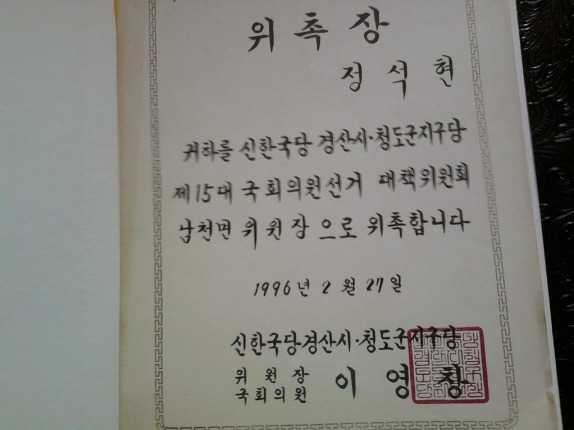 위촉장
정석현
귀하를 신한국당 경산시·청도군지구당
제15대 국회의원선거 대책위원회
남천면 위원장으로 위촉합니다
1996년 2월 27일
신한국당경산시·청도군지구당
위원장
국회의원 이영창